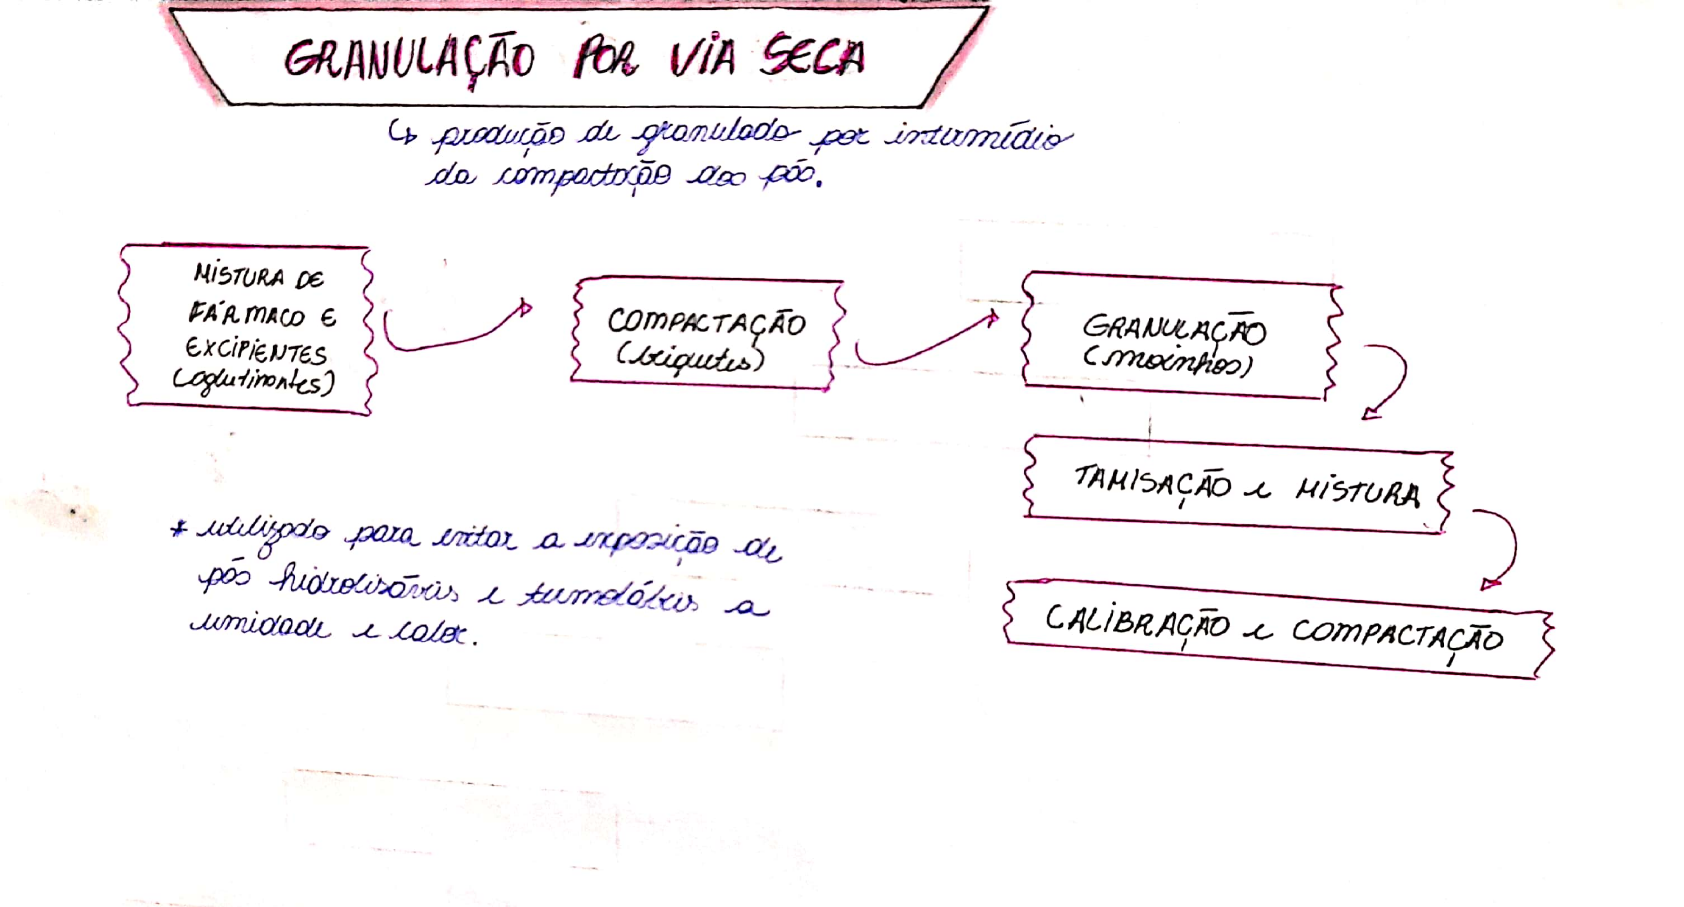 GRANULAÇÃO POR VIA SECA
↳ produção de granulado por intermédio
da compactação dos pós.
MISTURA DE
FÁRMACO E
EXCIPIENTES
(aglutinantes)
COMPACTAÇÃO
(briquetes)
GRANULAÇÃO
(moinhos)
TAMISAÇÃO e MISTURA
CALIBRAÇÃO e COMPACTAÇÃO
* utilizado para evitar a exposição de
pós hidrolisáveis e termolábeis a
umidade e calor.